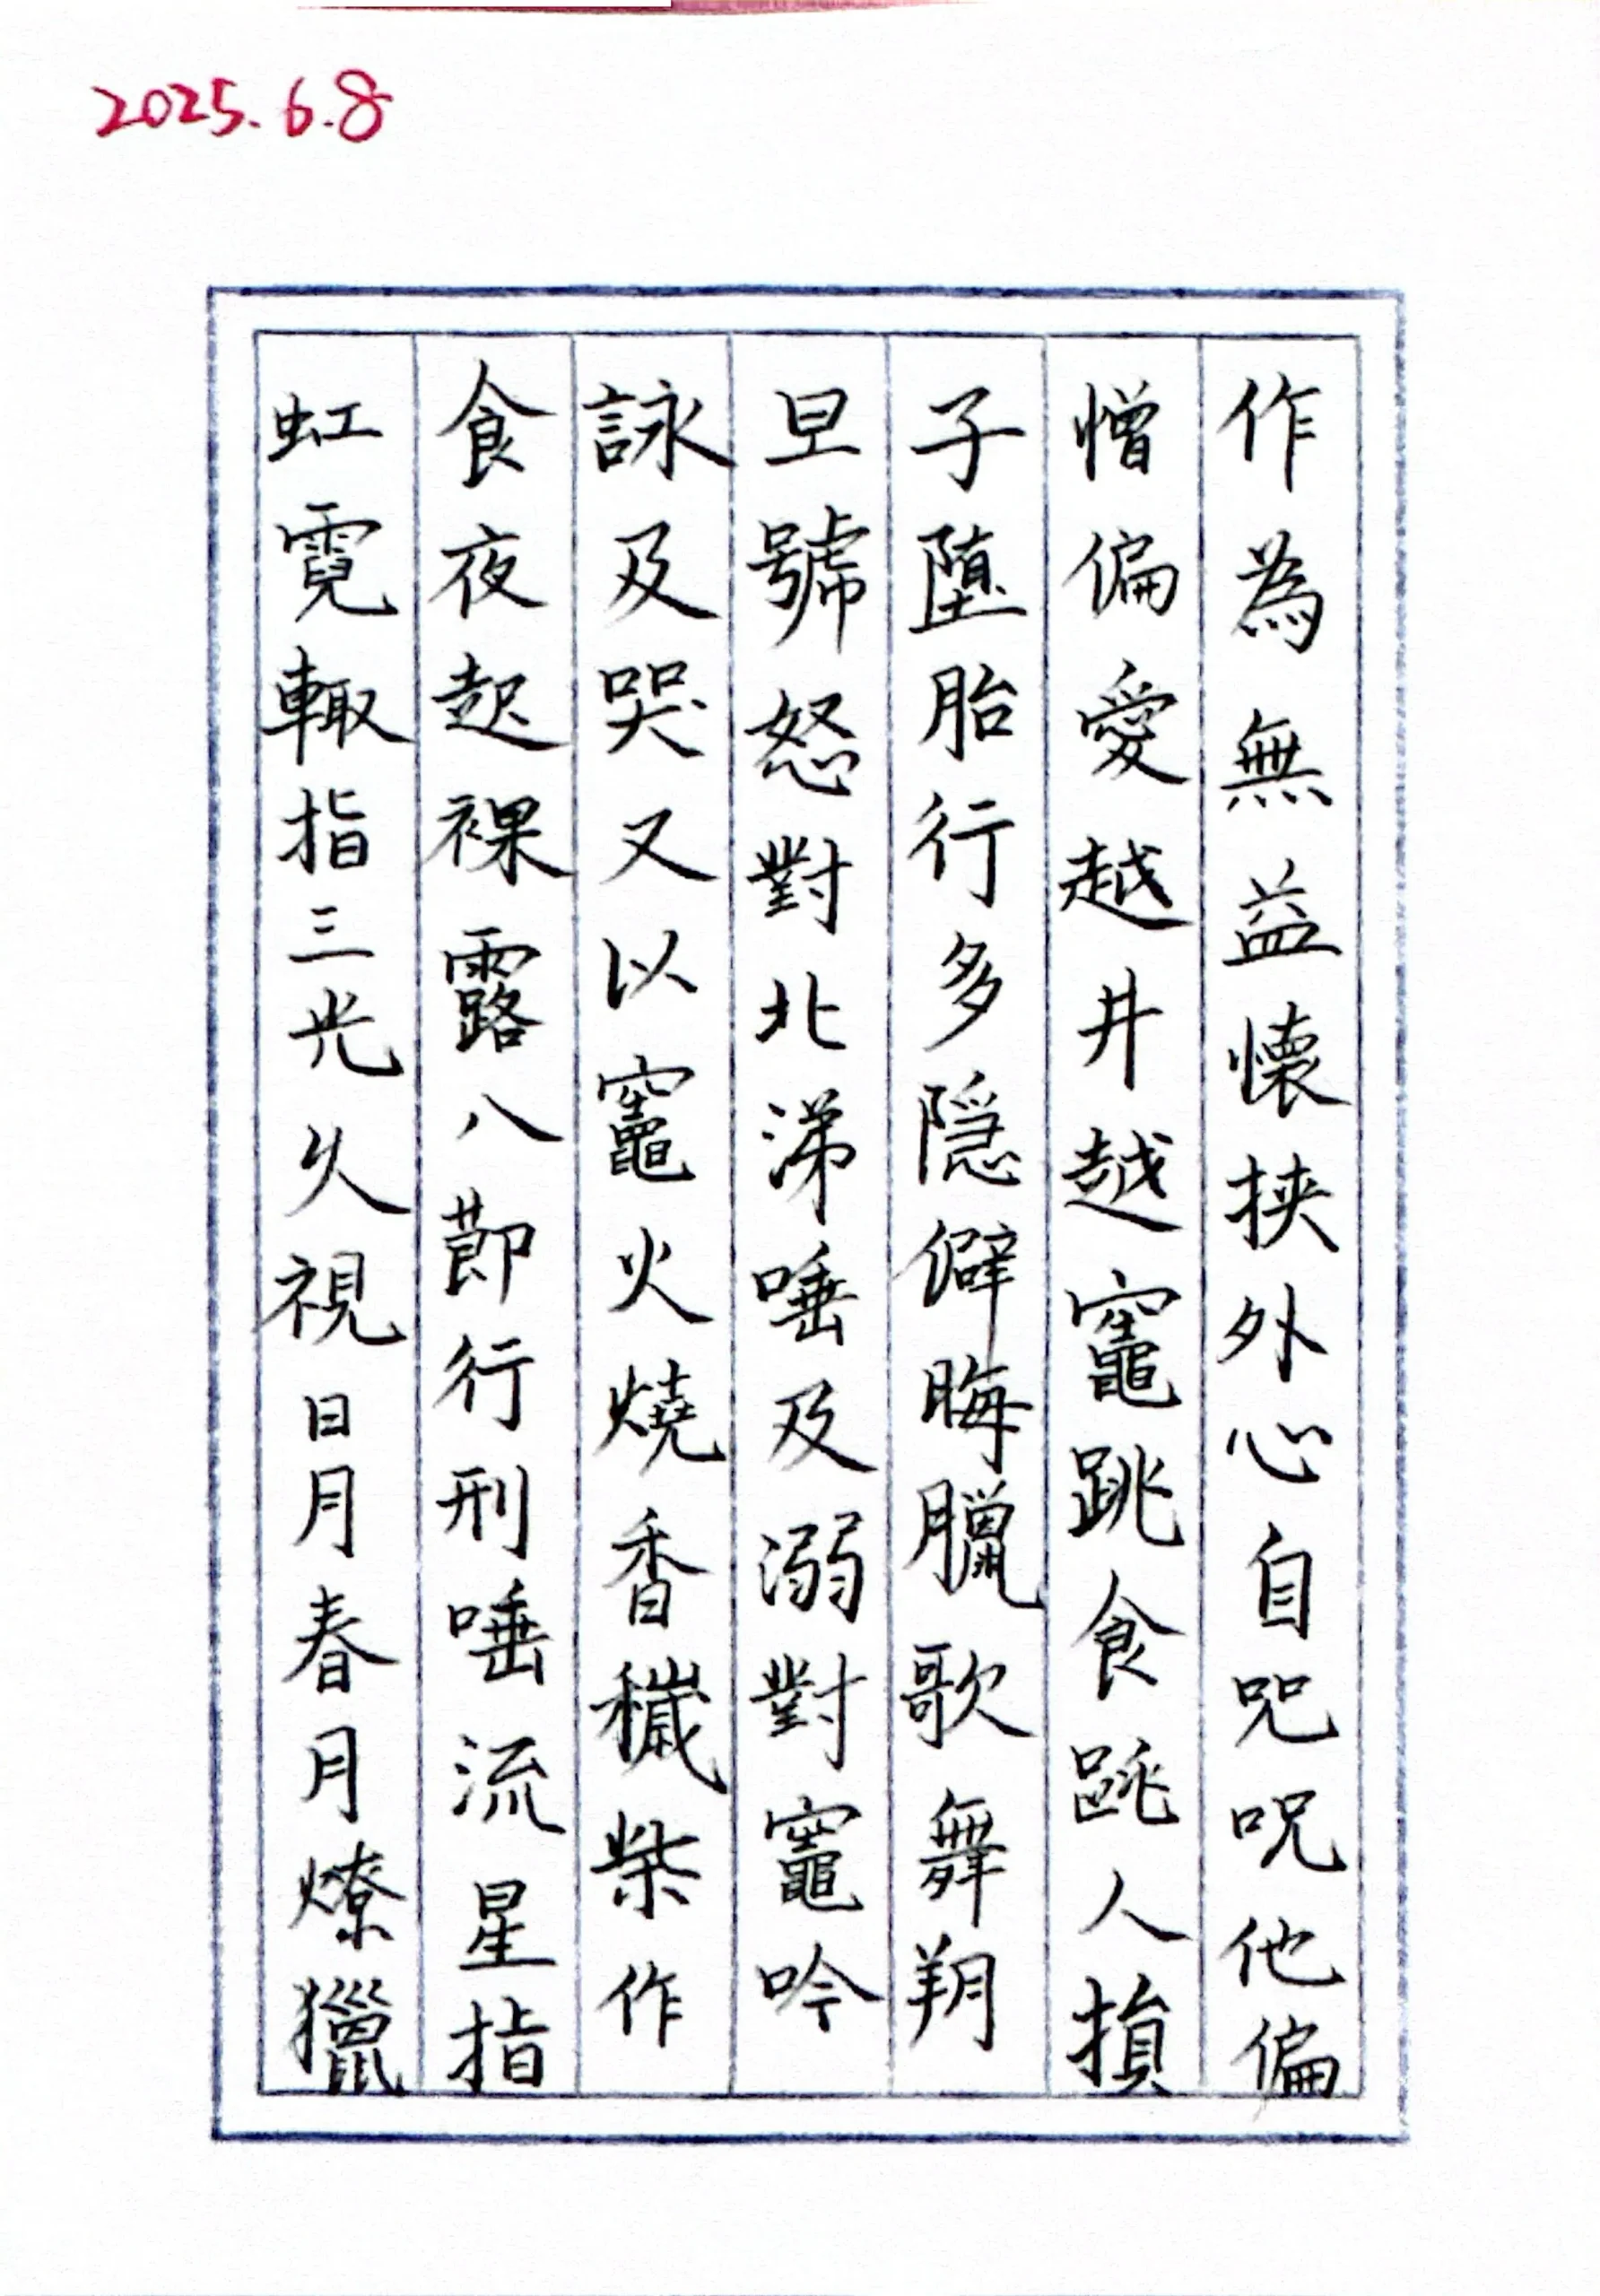 2025.6.8
作為無益懷挾外心自咒咒他偏
憎偏愛越井越竈跳食跳人損
子墮胎行多隱僻晦臘歌舞朔
旦號怒對北涕唾及溺對竈吟
詠及哭又以竈火燒香穢柴作
食夜起裸露八節行刑唾流星指
虹霓輙指三光久視日月春月燎獵